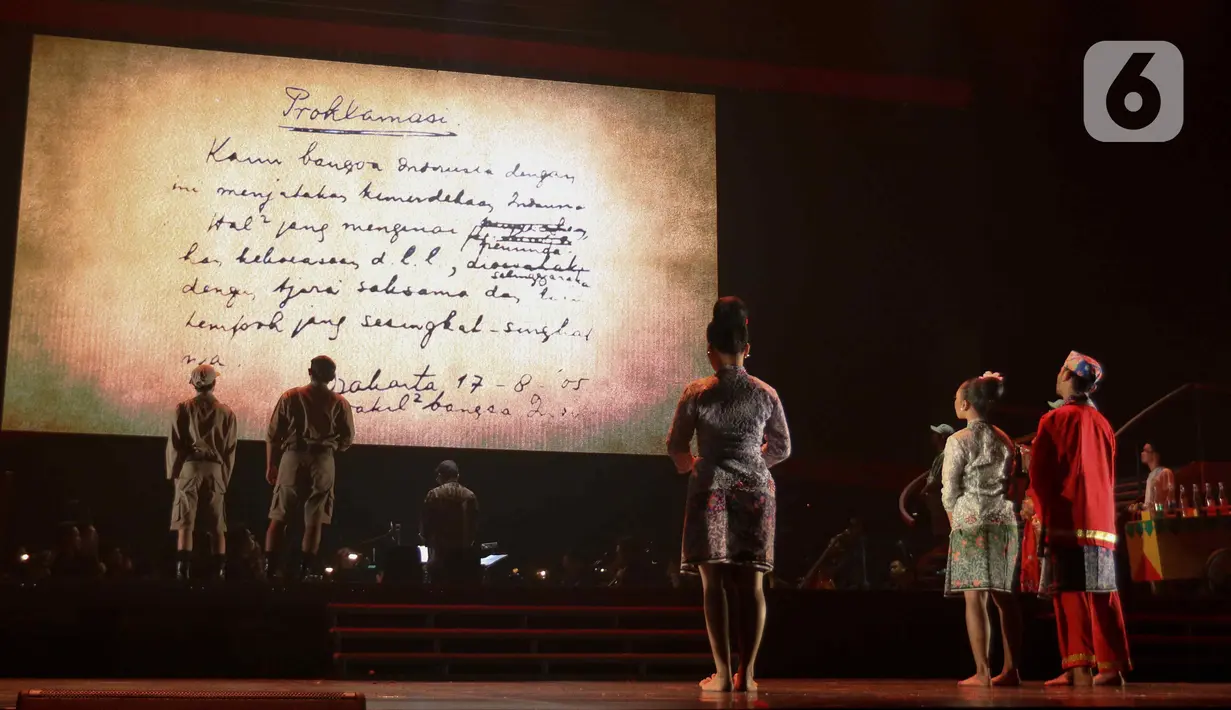 6
Proklamasi.
Kami bangsa Indonesia dengan
ini menjatakan kemerdekaan Indonesia
Hal² jang mengenai
peminda
han kekoeasaan d.l.l.,
selenggaraka
dengan tjara saksama dan
tempoh jang sesingkat-singkat
nja.
jakarta, 17-8-'05
akil² bangsa